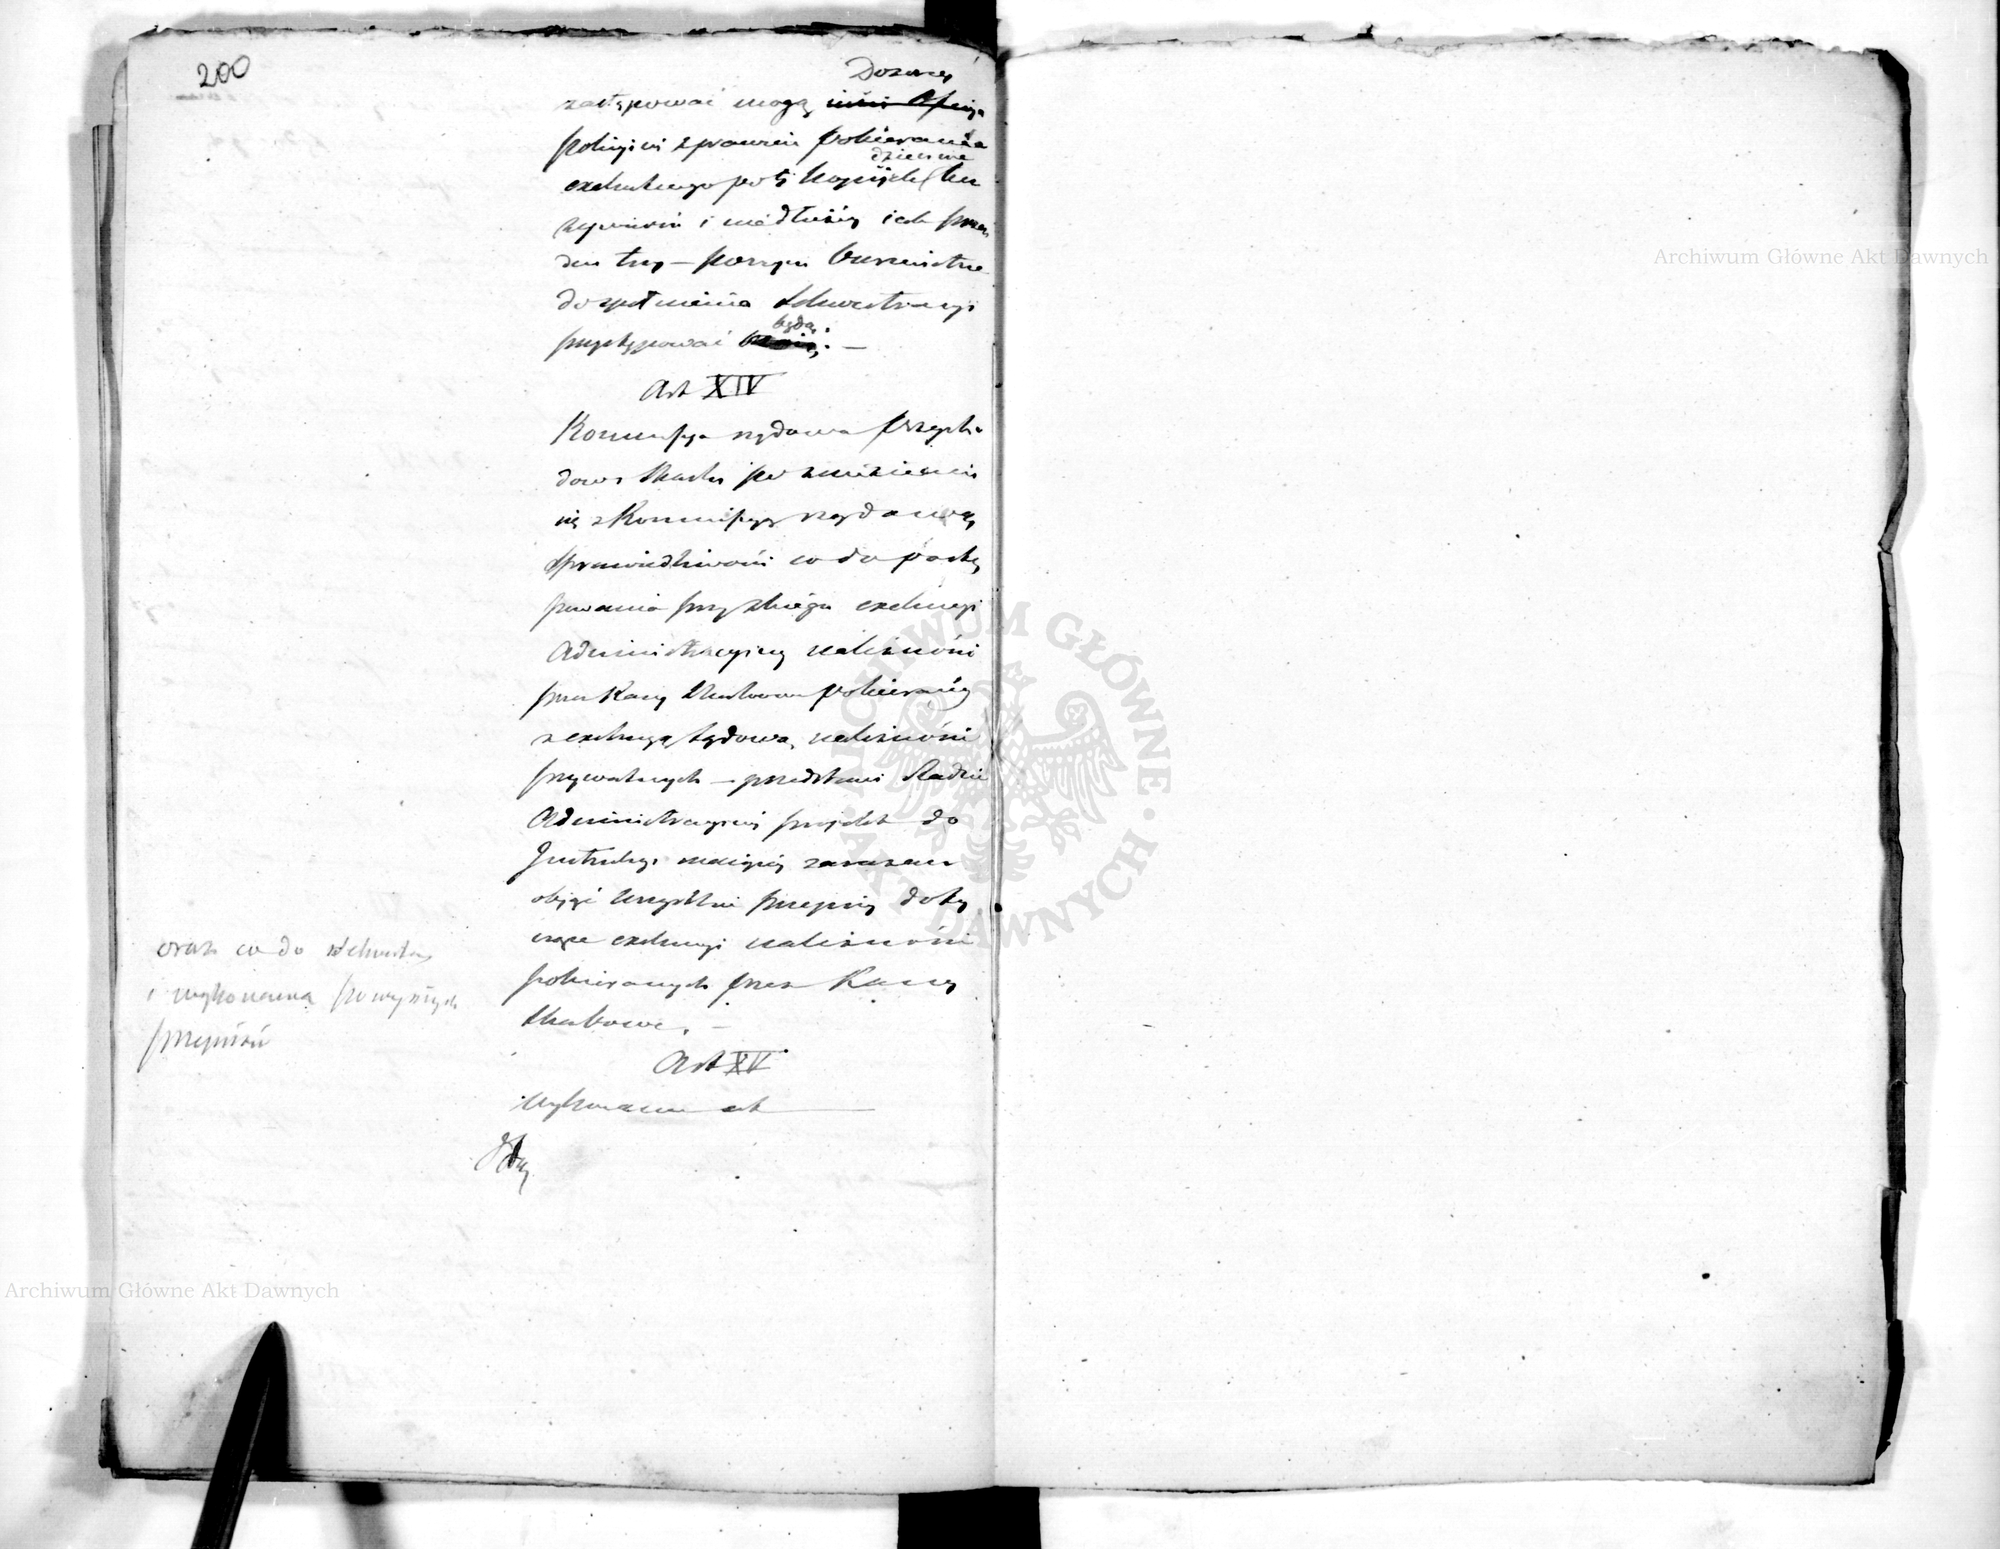 200
Dozorcy
zastępować mogą
policyjni z prawem pobierania
dziennie
exekucyjnego po
i niedłużéj jak przez
dni trzy — poczem Burmistrz
do spełnienia Sekwestracyi
przystępować
będą
Art XIV
Kommissya rządowa Przycho
dow i Skarbu po zniesieniu
się z Kommissyą rządową
Sprawiedliwości co do postę
powania przy zbiegu exekucyi
Administracyjnéj należności
przez Kassy Skarbowe pobieranéj
z exekucyą Sądową należności
prywatnych — przedstawi Radzie
Administracyjnéj projekt do
Instrukcyi mającéj zarazem
objąć wszystkie przepisy doty
czące exekucyi należności
pobieranych przez Kassy
Skarbowe. —
oraz co do
i wykonania powyższych
przepisów
Art XV
Wykonanie etc
Archiwum Główne Akt Dawnych
Archiwum Główne Akt Dawnych
ARCHIWUM GŁÓWNE · AKT DAWNYCH ·